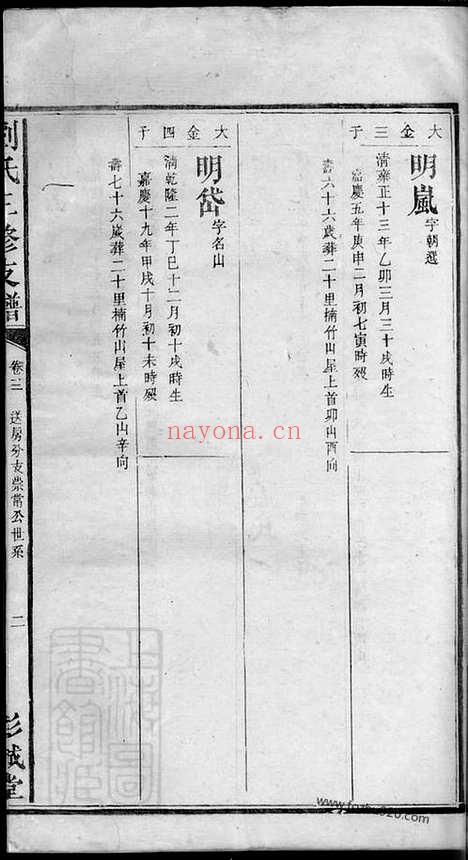 大金三子
明嵐字朝選
清雍正十三年乙卯三月三十戌時生
嘉慶五年庚申二月初七寅時歿
壽六十六歲葬二十里楠竹山屋上首卯山酉向
大金四子
明岱字名山
清乾隆二年丁巳十二月初十戌時生
嘉慶十九年甲戌十月初十未時歿
壽七十六歲葬二十里楠竹山屋上首乙山辛向
劉氏三修支譜
卷三 送房分支崇常公世系 二
彭城堂
上海圖書館藏
nayona.cn